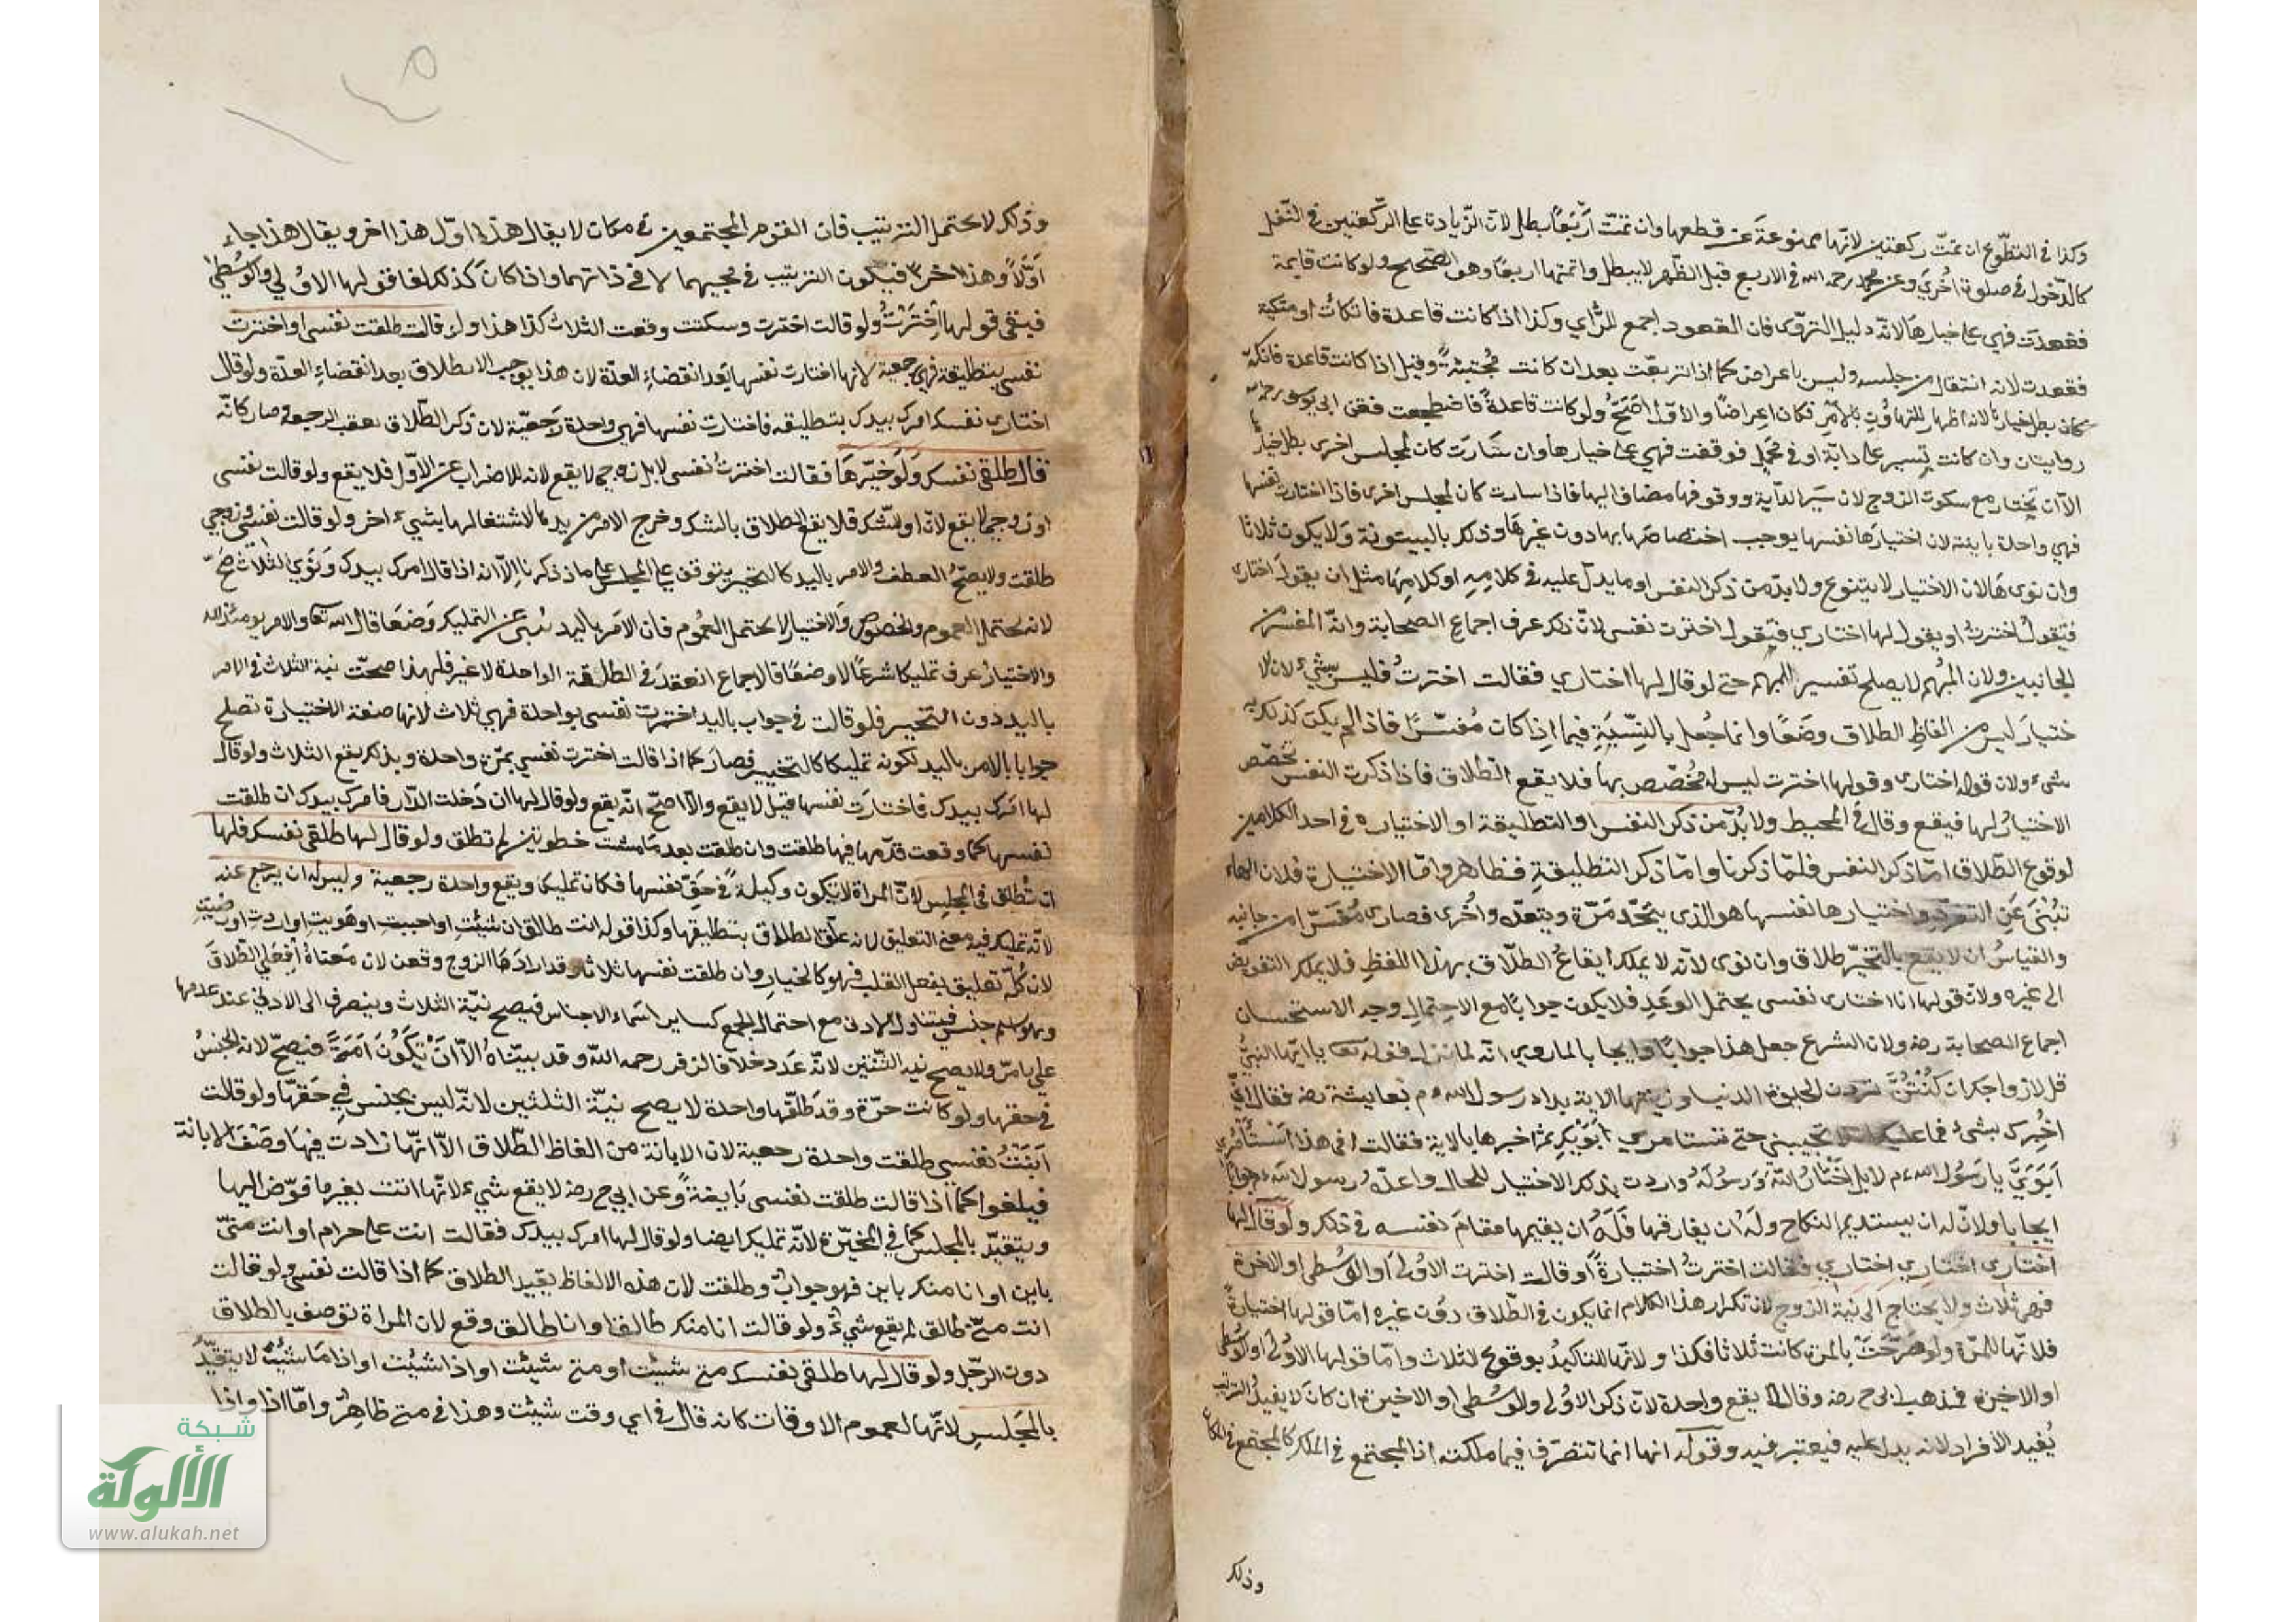 وكذا في التطوّع ان تمّت ركعتين لانّها ممنوعة عن قطعها وان تمّت اَرْبَعًا بطل لانّ الزّيادة على الرّكعتين في النّفل
كالدّخول في صلوة اُخرَي وعن محمد رحمه الله في الاربع قبل الظّهر لا يبطل واتمتها اربعًا وهو الصّحيح ولو كانت قايمة
فقعدت فهي على خيارهَا لانّه دليل التروّى فان القعود اجمع للرّأي وكذا اذا كانت قاعدة فاتكأت او متكية
فقعدت لانه انتقال من جلسه وليس باعراض كما اذا تربعّت بعد ان كانت مُحْتبئةً وقيل اذا كانت قاعدة فاتكت
كان بطل خيارها لانه اظهار للتهاوُن بالامر فكان اِعراضًا والاوّل اصَحّ ولو كانت قاعدةً فاضطجعت فعن ابى يوسف رحمه الله
روايتان وان كانت تسير على دابّة او في محمل فوقفت فهي على خيارها وان سَارَت كان لمجلس اخرى بطل خيارها
الاّ ان يختار مع سكوت الزوج لان سَير الدّابة ووقوفها مضاف اليها فاذا سارت كان لمجلس اخرى فاذا اختارت نفسها
فهي واحدة باينة لان اختيارَها نفسها يوجب اختصاصَها بها دون غيرهَا وذلك بالبينونة وَلا يكون ثلاثا
وان نوى هَا لان الاختيار لا يتنوع ولا بدّ من ذكر النفس او ما يدلّ عليه في كلامِهِ او كلامِهَا مثل ان يقول اختارى
فتقول اخترتُ او يقول لها اختاري فتقول اخترت نفسى لانّ ذلك عرف اجماع الصحابة وانّه المفسَّر من
الجانبين ولان المبُهم لا يصلح تفسير المبهم حتى لو قال لها اختاري فقالت اخترتُ فليس بشيء لان الا
ختيارَ ليس من الفاظِ الطلاق وضَعًا وانما جُعل بالنِّسْبَةِ فيما اِذا كان مُفسّرًا فاذا لم يكن كذلك
شىء ولان قوله اختارى وقولها اخترت ليس له مُخصّص بها فلا يقع الطّلاق فاذا ذكرت النفس تخصّص
الاختيارُ لها فيقع وقال في المحيط ولا بُدّ من ذكر النفس او التطليقة او الاختياره في احد الكلامين
لوقوع الطّلاق امّا ذكر النفس فلمّا ذكرنا وامّا ذكر التطليقةِ فظاهر وامّا الاختيارة فلان الهاء
تُنْبئ عَنِ التفرّد واختيارها نفسها هو الذى يتحّد مَرّة ويتعدّد اُخرى فصارى مُفسّرا من جانبه
والقياسُ ان لا يقع بالتخيّر طلاق وان نوى لانّه لا يملك ايقاعُ الطّلاق بهذا اللفظِ فلا يملك التفويض
الى غيره ولانّ قولها انا اختارى نفسى يحتمل الوعَد فلا يكون جوابًا مع الاحتِمالِ وجه الاستحسان
اجماع الصحابة رضه ولان الشرع جعل هذا جوابًا وايجابا لما روي انّه لما نزل قوله تعا يا ايّها النبيُّ
قل لازواجك ان كُنْتُنَّ تردن الحيوة الدنيا وزينتها الاية بدا رسول الله م بعايشة رضه فقال اِنّى
اُخبِرك بشىء فما عليك ان لا تجيبيني حتى تستامري اَبَوَيْكِ ثم اخبرها بالاية فقالت افى هذا اَسْتَأمِرُ
اَبَوَيَّ يا رَسُول الله م لا بل اَخْتَارُ اللهَ وَرَسُولَهُ وارادت بذلك الاختيار للحال واعدّهُ رسول الله م جوابًا
ايجابا ولانّ له ان يستديم النكاح ولَهُ ان يفارقها فَلَهُ ان يقيمها مقامَ نفسه في ذلك ولو قال لها
اختارى اختارِي اختاري فقالت اخترتُ اختيارةً او قالت اخترت الاوُلى اَو الوُسْطى او الاخرة
فهى ثلاث ولا يحتاج الى نية الزوج لانّ تكرار هذا الكلام انما يكون في الطّلاق دوُن غيره امّا قولها اختيارةً
فلانّها للمرّة ولو صَرّحَتْ بالمرّة كانت ثلاثا فكذا ولانّها للتاكيدُ بوقوع الثلاث وامّا قولها الاوُلى او الوسطى
او الاخيرة فمذهب ابى ح رضه وقالا يقع واحدة لانّ ذكر الاوُلى والوُسْطى او الاخيرة ان كانَ لا يفيدُ الترتيب
يُفيد الافراد لانه يدل عليه فيعتبر فيه وقوله انها انما تتصرّف فيما ملكته اذ المجتمع في الملك كالمجتمع في المكان
وذلك
وذلك لا يحتمل الترتيب فان القوم المجتمعين في مكان لا يقال هذا اوّل هذا اخر ويقال هذا جاء
اَوَّلاً وهذا اخرًا فيكون الترتيب في مجيهما لا في ذاتهما واذا كانَ كذلك لغا قولها الاوُلي والوُسْطي
فيبقى قولها اِخْتَرْتُ ولو قالت اخترت وسكتت وقعت الثلاث كذا هذا ولو قالت طلقت نفسى او اخترت
نفسى بتطليقة فهى رجعية لانها اختارت نفسها بَعد انقضاءِ العدّة لان هذا يوجب الانطلاق بعد انقضاءِ العدّة ولو قال
اختارى نفسك امرك بيدك بتطليقه فاختارت نفسها فهى واحدة رَجعيّة لان ذكر الطّلاق يعقب الرجعة صار كانّه
قال طلقى نفسك وَلَو خيّرهَا فقالت اخترتُ نفسى لا بل زوجى لا يقع لانه للاضراب عن الاوّل فلا يقع ولو قالت نفسى
او زوجى لا يقع لانّ او للشك فلا يقع الطلاق بالشك وخرج الامر من يدها لاشتغالها بشيء اخر ولو قالت نفسى وزوجي
طلقت ولا يصحّ العطف والامر باليد كالتخيير يتوقف على المجلس على ما ذكرنا الاّ انه اذا قال امرك بيدك وَنَوَي الثلاث صَحّ
لانه يحتمل العموم والخصوص وَالاختيار لا يحتمل العُموم فان الامَر باليد يُنبئ عن التمليك وَضعَا قال الله تعا والامر يومئذ لله
والاختيارُ عرف تمليكا شرعًا لا وضعًا فالاجماع انعقدَ في الطلقة الواحدة لا غير فلهذا صحّت نية الثلاث في الامر
باليد دون التخيير فلو قالت في جواب باليد اخترت نفسى بواحدة فهي ثلاث لانها صفة الاختيارة تصلح
جوابا بالامر باليد لكونه تمليكا كالتخيير فصارَ كما اذا قالت اخترت نفسي بمرّة واحدة وبذلك يقع الثلاث ولو قال
لها امرك بيدك فاختارَت نفسها قيل لا يقع والاصحّ انّه يقع ولو قال لها ان دَخلت الدّار فامرك بيدك ان طلقت
نفسها كما وقعت قدّمها فيها طلقت وان طلقت بعد مَا مشت خطوتين لم تطلق ولو قال لها طلقى نفسك فلها
ان تُطلق في المجلِس لانّ المراة لا تكون وكيلةً في حَقّ نفسها فكان تمليكا ويقع واحدة رجعية وليس له ان يرجع عنه
لانّه تمليك فيه معنى التعليق لانه علّق الطلاق بتطليقها وكذا قوله انت طالق ان شئتِ او احببتِ او هَوِيتِ او اردتِ او رضيتِ
لان كُلّه تعليق بفعل القلب فهو كالخيارِ وان طلقت نفسها ثلاثا وقد ارادَهَا الزوج وقعن لان معناهُ اِفعَلِي الطّلاقَ
وهو اسم جنس فيتناول الادنى مع احتمال الجمع كساير اسَماء الاجناس فيصح نيّة الثلاث وينصرف الى الادنى عند عدمها
علي ما مرّ ولا يصح نية الثِّنْتين لانّه عَدَد خلافا لزفر رحمه الله وقد بيّناهُ الاّ اَنْ تكوُنَ اَمَةً فيصحّ لانه الجنسُ
في حقها ولو كانت حرّة وقد طلّقها واحدة لا يصح نيّة الثلثين لانّه ليس بجنس فِي حَقّها ولو قالت
اَبَنْتُ نفسي طلقت واحدة رجعية لان الابانة من الفاظ الطّلاق الاّ انّها زادت فيها وصْفَ الابانة
فيلغوا كما اذا قالت طلقت نفسى بَاينةً وعن ابي ح رضه لا يقع شيء لانّها اتت بغير ما فوّض اليها
ويتقيّد بالمجلس كما في المخيّرة لانّه تمليك ايضا ولو قال لها امرك بيدك فقالت انت على حرام او انت منّى
باين او انا منك باين فهو جوابٌ وطلقت لان هذه الالفاظ يقيد الطلاق كما اذا قالت نفسى ولو قالت
انت منّى طالق لم يقع شيءٌ ولو قالت انا منك طالق او انا طالق وقع لان المراة توصف بالطلاق
دون الرّجل ولو قال لها طلقى نفسك متى شئتِ او متى شيئت او اذا شئت او اذا مَا شئت لا يتقيّدُ
بالمَجلسِ لانّها لعموم الاوقات كانه قال في اي وقت شئت وهذا في متى ظاهرٌ وامّا اذا واذا
شبكة
الألوكة
www.alukah.net